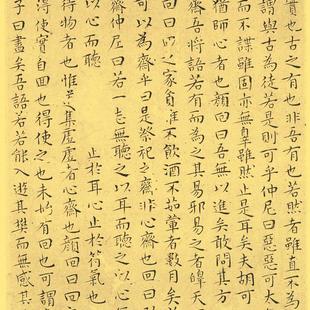 實也古之有也非吾有也若然者雖直不為
謂與古為徒若是則可乎仲尼曰惡惡可大
而不諜雖固亦無辠雖然止是耳矣夫胡可
猶師心者也顏回曰吾無以進矣敢問其方
齋吾將語若有而為之其易邪易之者皞天
回曰回之家貧唯不飲酒不茹葷者數月矣若
可以為齋乎曰是祭祀之齋非心齋也回曰
齋仲尼曰若一志無聽之以耳而聽之以心
以心而聽 止於耳心止於符氣也
待物者也惟道集虛虛者心齋也顏回曰回
得使實自回也得使之也未始有回也可謂
子曰盡矣吾語若若能入遊其樊而無感其